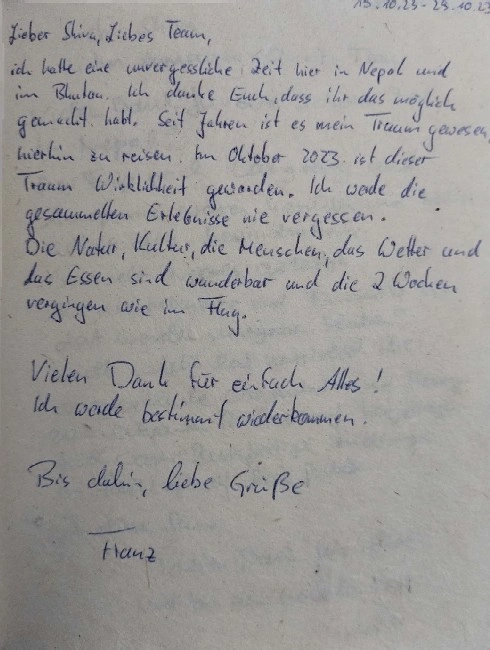 15.10.23 - 29.10.23
Lieber Shiva, Liebes Team,
ich hatte eine unvergessliche Zeit hier in Nepal und
im Bhutan. Ich danke Euch, dass ihr das möglich
gemacht habt. Seit Jahren ist es mein Traum gewesen,
hierhin zu reisen. Im Oktober 2023 ist dieser
Traum Wirklichkeit geworden. Ich werde die
gesammelten Erlebnisse nie vergessen.
Die Natur, Kultur, die Menschen, das Wetter und
das Essen sind wunderbar und die 2 Wochen
vergingen wie im Flug.
Vielen Dank für einfach Alles!
Ich werde bestimmt wiederkommen.
Bis dahin, liebe Grüße
Franz